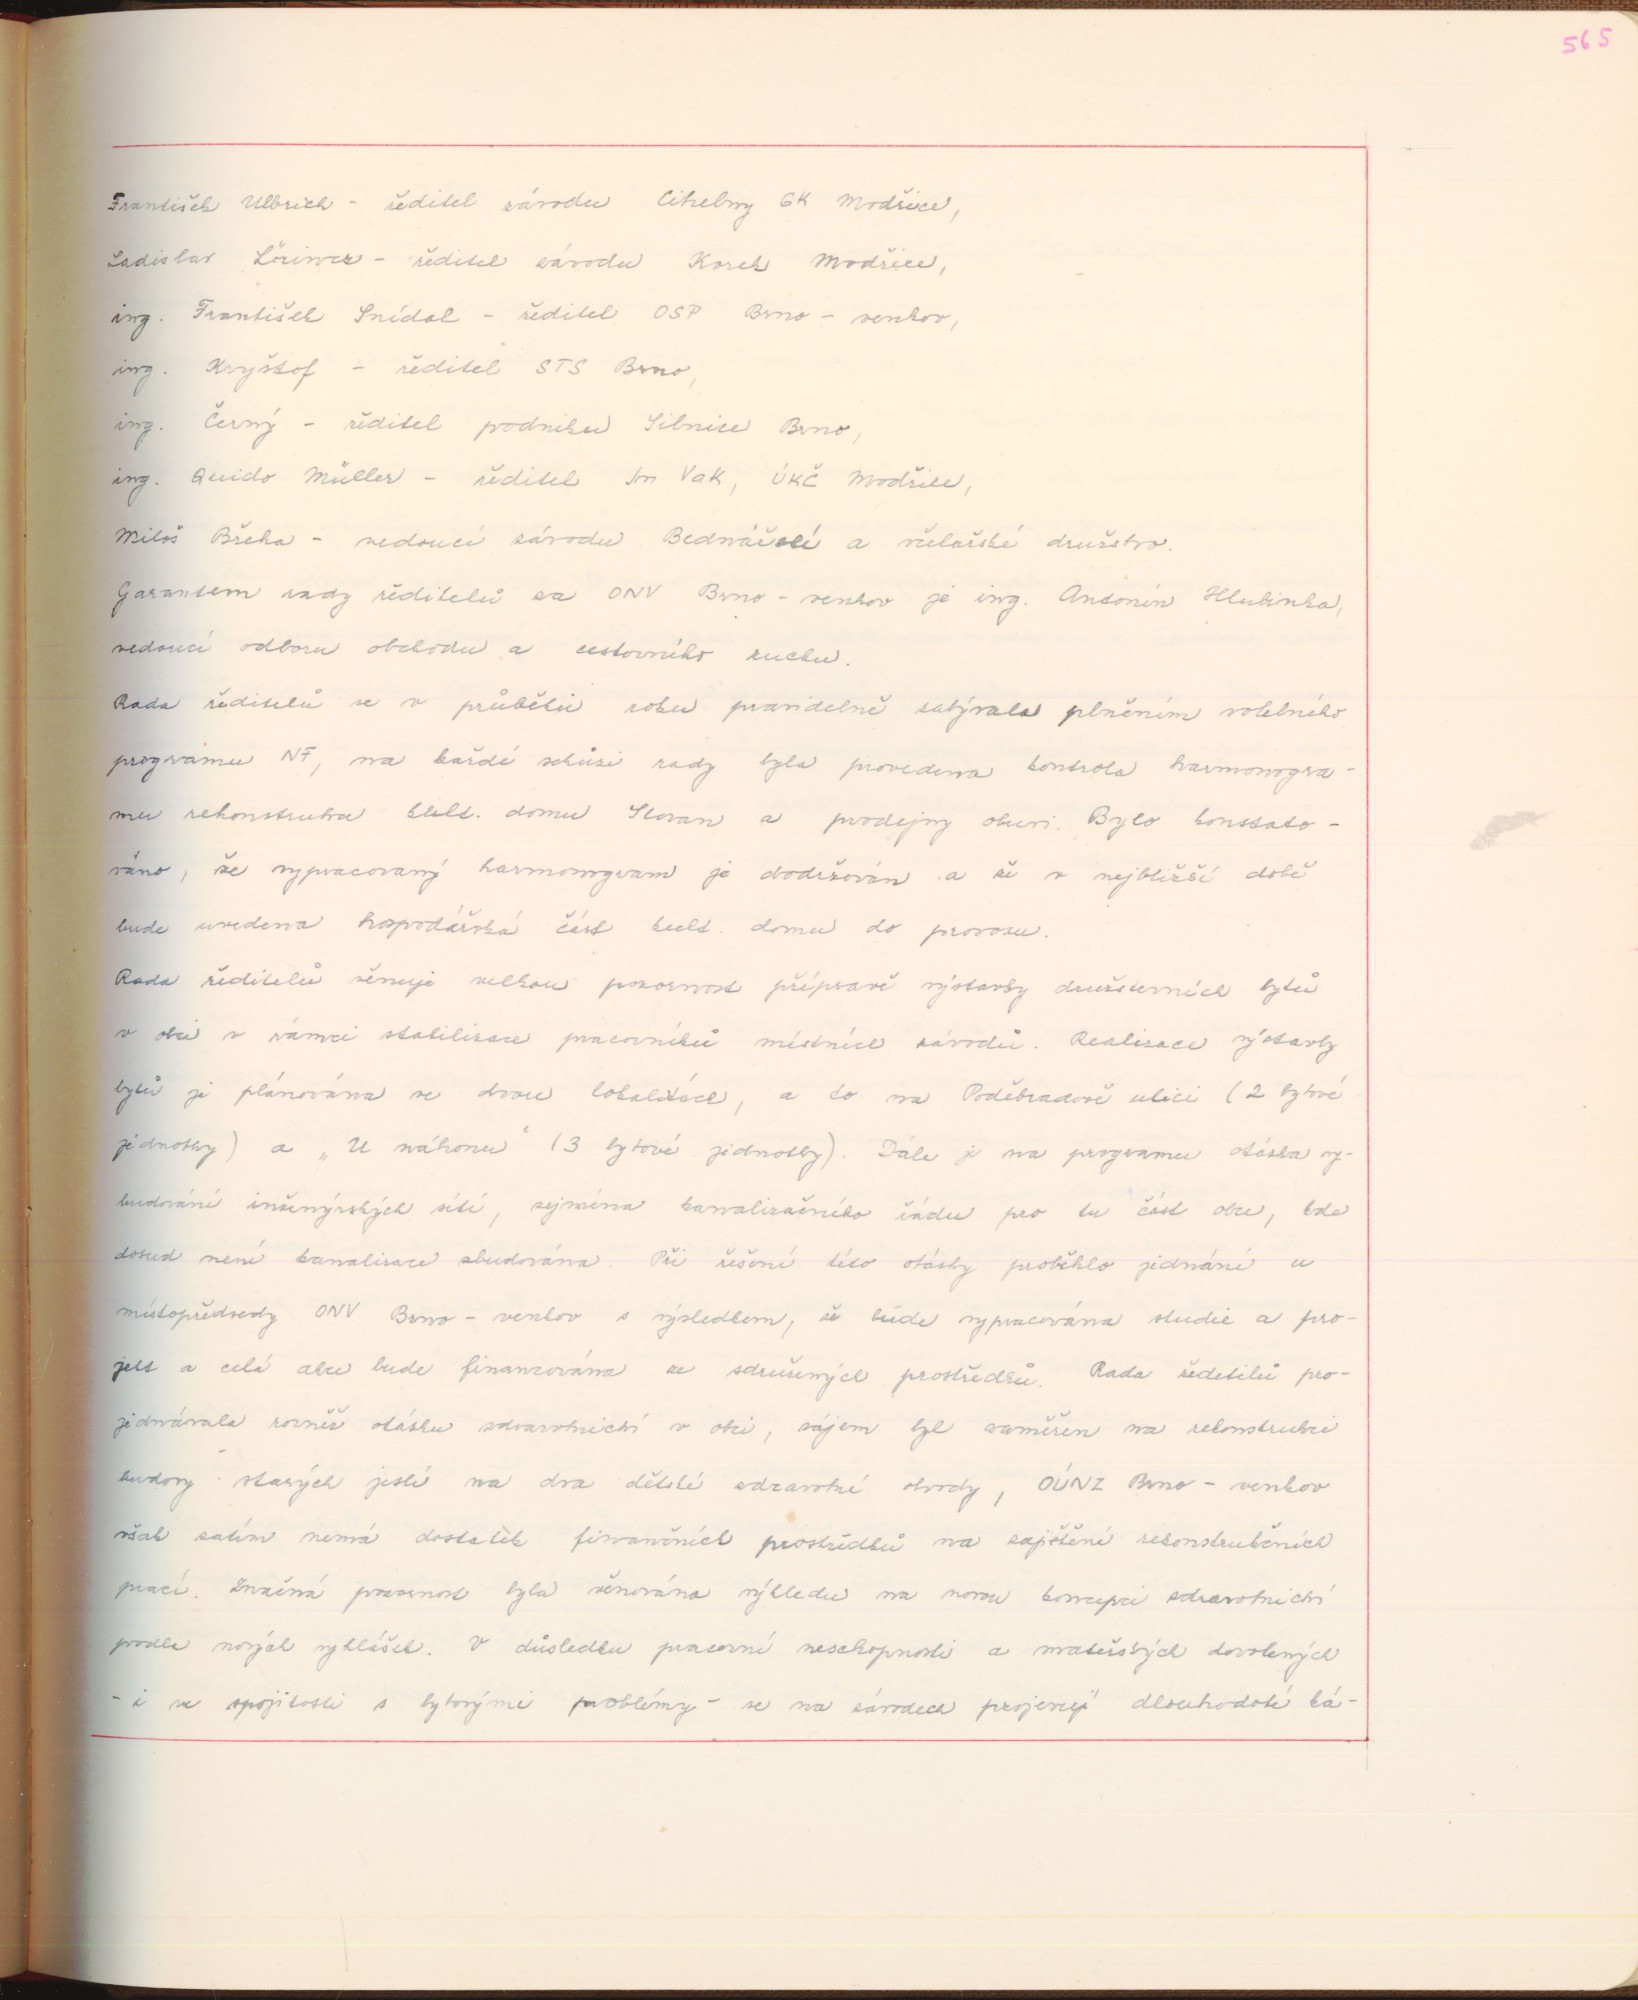 565
František Ulbrich - ředitel závodu Cihelny GK Modřice,
Ladislav Lörincz - ředitel závodu Korek Modřice,
ing. František Snídal - ředitel OSP Brno - venkov,
ing. Kryštof - ředitel STS Brno,
ing. Černý - ředitel podniku Silnice Brno,
ing. Quido Müller - ředitel Jm VaK, ÚKČ Modřice,
Miloš Břeha - vedoucí závodu Bednářské a včelařské družstvo.
Garantem rady ředitelů za ONV Brno - venkov je ing. Antonín Hlubinka,
vedoucí odboru obchodu a cestovního ruchu.
Rada ředitelů se v průběhu roku pravidelně zabývala plněním volebního
programu NF, na každé schůzi rady byla provedena kontrola harmonogra-
mu rekonstrukce kult. domu Slovan a prodejny obuvi. Bylo konstato-
váno, že vypracovaný harmonogram je dodržován a že v nejbližší době
bude uvedena hospodářská část kult. domu do provozu.
Rada ředitelů věnuje velkou pozornost přípravě výstavby družstevních bytů
v obci v rámci stabilizace pracovníků místních závodů. Realizace výstavby
bytů je plánována ve dvou lokalitách, a to na Poděbradově ulici (2 bytové
jednotky) a „U náhonu“ (3 bytové jednotky). Dále je na programu otázka vy-
budování inženýrských sítí, zejména kanalizačního řádu pro tu část obce, kde
dosud není kanalizace zbudována. Při řešení této otázky proběhlo jednání u
místopředsedy ONV Brno - venkov s výsledkem, že bude vypracována studie a pro-
jekt a celá akce bude financována ze sdružených prostředků. Rada ředitelů pro-
jednávala rovněž otázku zdravotnictví v obci, zájem byl zaměřen na rekonstrukci
budovy starých jeslí na dva dětské zdravotní obvody, OÚNZ Brno - venkov
však zatím nemá dostatek finančních prostředků na zajištění rekonstrukčních
prací. Značná pozornost byla věnována výhledu na novou koncepci zdravotnictví
podle nových vyhlášek. V důsledku pracovní neschopnosti a mateřských dovolených
- i ve spojitosti s bytovými problémy - se na závodech projevují dlouhodobé ká-